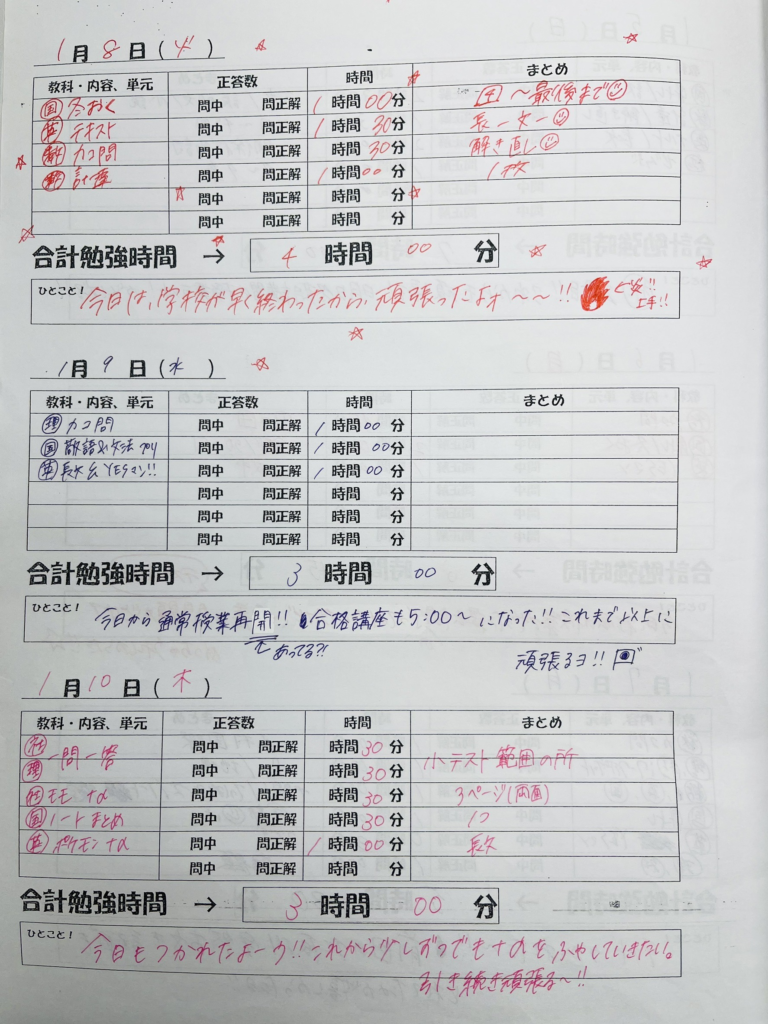 1月8日(火)
教科・内容、単元 正答数 時間 まとめ
国 冬おく 問中 問正解 1時間00分 国～最後まで
英 テキスト 問中 問正解 1時間30分 長一文一
カコ問 問中 問正解 時間30分 解き直し
計算 問中 問正解 1時間00分 1枚
問中 問正解 時間 分
問中 問正解 時間 分
合計勉強時間 → 4時間00分
ひとこと!
今日は、学校が早く終わったから、頑張ったよォ～～!!
上手!!
1月9日(水)
教科・内容、単元 正答数 時間 まとめ
理 カコ問 問中 問正解 1時間00分
国 敬語&文法 問中 問正解 1時間00分
英 長文 & YESマン!! 問中 問正解 1時間00分
問中 問正解 時間 分
問中 問正解 時間 分
問中 問正解 時間 分
合計勉強時間 → 3時間00分
ひとこと!
今日から通常授業再開!! 合格講座も5:00～になった!! これまで以上に
あってる?!
頑張るヨ!!
1月10日(木)
教科・内容、単元 正答数 時間 まとめ
社 一問一答 問中 問正解 時間30分 小テスト範囲の所
理 問中 問正解 時間30分
社 モモ 問中 問正解 時間30分 3ページ(両面)
国 ノートまとめ 問中 問正解 時間30分 1つ
英 ポケモン 問中 問正解 1時間00分 長文
問中 問正解 時間 分
合計勉強時間 → 3時間00分
ひとこと!
今日もつかれたよーウ!! これから少しずつでも をふやしていきたい。
引き続き頑張る～!!